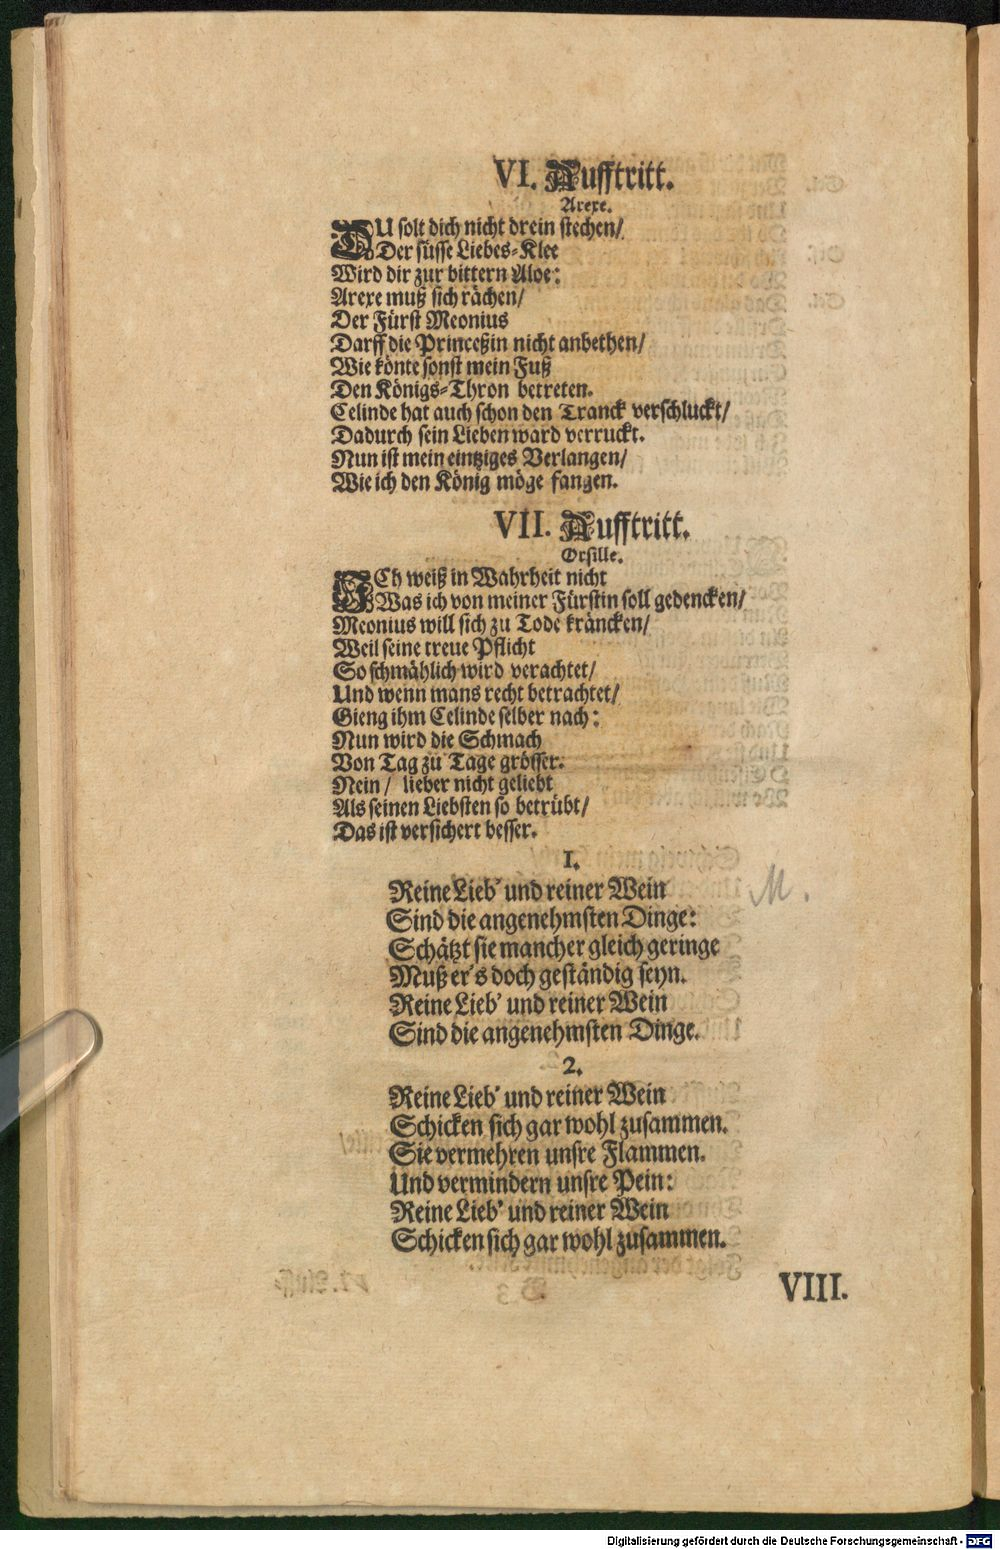 VI. Aufftritt.
Arexe.
DU solt dich nicht drein stechen/
Der süsse Liebes-Klee
Wird dir zur bittern Aloe:
Arexe muß sich rächen/
Der Fürst Meonius
Darff die Princeßin nicht anbethen/
Wie könte sonst mein Fuß
Den Königs-Thron betreten.
Celinde hat auch schon den Tranck verschluckt/
Dadurch sein Lieben ward verruckt.
Nun ist mein eintziges Verlangen/
Wie ich den König möge fangen.
VII. Aufftritt.
Orsille.
ICh weiß in Wahrheit nicht
Was ich von meiner Fürstin soll gedencken/
Meonius will sich zu Tode kräncken/
Weil seine treue Pflicht
So schmählich wird verachtet/
Und wenn mans recht betrachtet/
Gieng ihm Celinde selber nach:
Nun wird die Schmach
Von Tag zu Tage grösser.
Nein/ lieber nicht geliebt
Als seinen Liebsten so betrübt/
Das ist versichert besser.
1.
Reine Lieb' und reiner Wein
Sind die angenehmsten Dinge:
Schätzt sie mancher gleich geringe
Muß er's doch geständig seyn.
Reine Lieb' und reiner Wein
Sind die angenehmsten Dinge.
M.
2.
Reine Lieb' und reiner Wein
Schicken sich gar wohl zusammen.
Sie vermehren unsre Flammen.
Und vermindern unsre Pein:
Reine Lieb' und reiner Wein
Schicken sich gar wohl zusammen.
VIII.
Digitalisierung gefördert durch die Deutsche Forschungsgemeinschaft - DFG